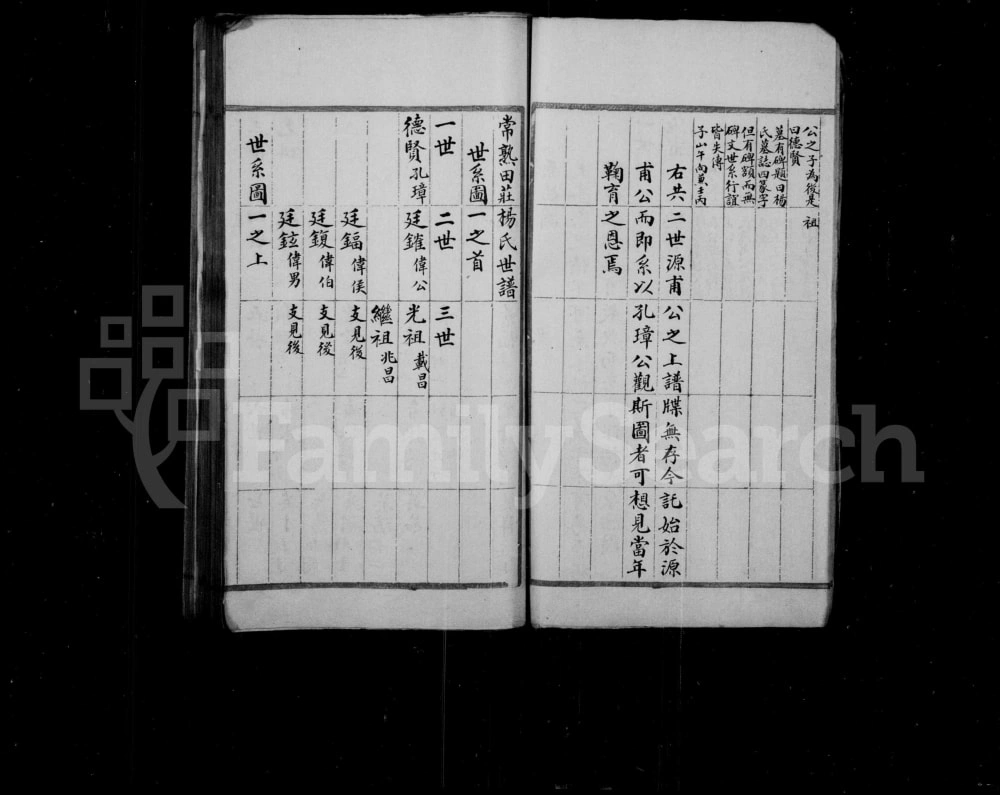 公之子為後是 祖
曰德賢
墓有碑題曰楊
氏墓誌四篆字
但有碑額而無
碑文世系行誼
皆失傳
子山午向兼壬丙
右共二世源甫公之上譜牒無存今託始於源
甫公而即系以孔璋公觀斯圖者可想見當年
鞠育之恩焉
常熟田莊楊氏世譜
世系圖一之首
一世 二世 三世
德賢孔璋 廷鑵偉公 光祖載昌
繼祖兆昌
廷鍢偉侯 支見後
廷鍑偉伯 支見後
廷鉉偉男 支見後
世系圖一之上
FamilySearch